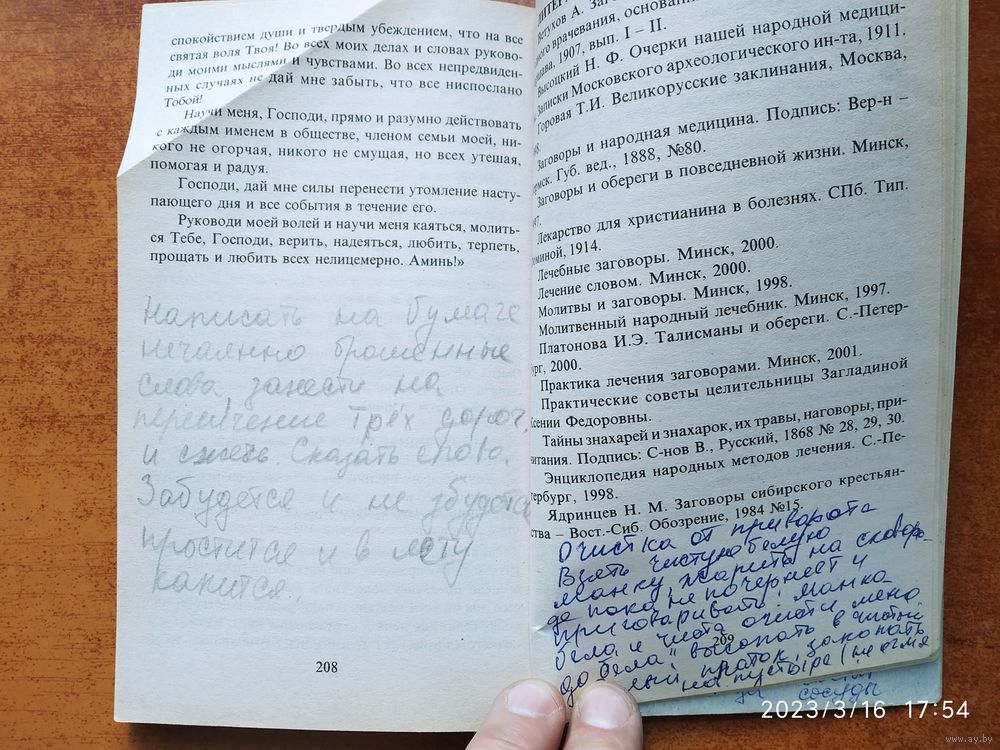 спокойствием души и твердым убеждением, что на все
святая воля Твоя! Во всех моих делах и словах руково-
ди моими мыслями и чувствами. Во всех непредвиден-
ных случаях не дай мне забыть, что все ниспослано
Тобой!
Научи меня, Господи, прямо и разумно действовать
с каждым именем в обществе, членом семьи моей, ни-
кого не огорчая, никого не смущая, но всех утешая,
помогая и радуя.
Господи, дай мне силы перенести утомление насту-
пающего дня и все события в течение его.
Руководи моей волей и научи меня каяться, молить-
ся Тебе, Господи, верить, надеяться, любить, терпеть,
прощать и любить всех нелицемерно. Аминь!»
Написать на бумаге
нечаянно брошенные
слова, занести на
пересечение трёх дорог,
и сжечь. Сказать слова.
Забудется и не збудется
простится и в лету
канится.
208
Ветухов А.
ного врачевания,
1907, вып. I – II.
Высоцкий Н. Ф. Очерки нашей народной медици-
Записки Московского археологического ин-та, 1911.
Горовая Т.И. Великорусские заклинания, Москва,
Заговоры и народная медицина. Подпись: Вер-н –
Губ. вед., 1888, №80.
Заговоры и обереги в повседневной жизни. Минск,
Лекарство для христианина в болезнях. СПб. Тип.
1914.
Лечебные заговоры. Минск, 2000.
Лечение словом. Минск, 2000.
Молитвы и заговоры. Минск, 1998.
Молитвенный народный лечебник. Минск, 1997.
Платонова И.Э. Талисманы и обереги. С.-Петер-
бург, 2000.
Практика лечения заговорами. Минск, 2001.
Практические советы целительницы Загладиной
Ксении Федоровны.
Тайны знахарей и знахарок, их травы, наговоры, при-
читания. Подпись: С-нов В., Русский, 1868 № 28, 29, 30.
Энциклопедия народных методов лечения. С.-Пе-
тербург, 1998.
Ядринцев Н. М. Заговоры сибирского крестьян-
ства – Вост.-Сиб. Обозрение, 1984 №15.
Очистка от приворота
Взять чистую белую
манку, жарить на сковоро-
де пока не почернеет и
приговаривать: Манка
бела и чиста очисти меня
до бела" высыпать в чистый
платок, закопать
на пустыре (не
209
сосуды
2023/3/16 17:54
www.ay.by